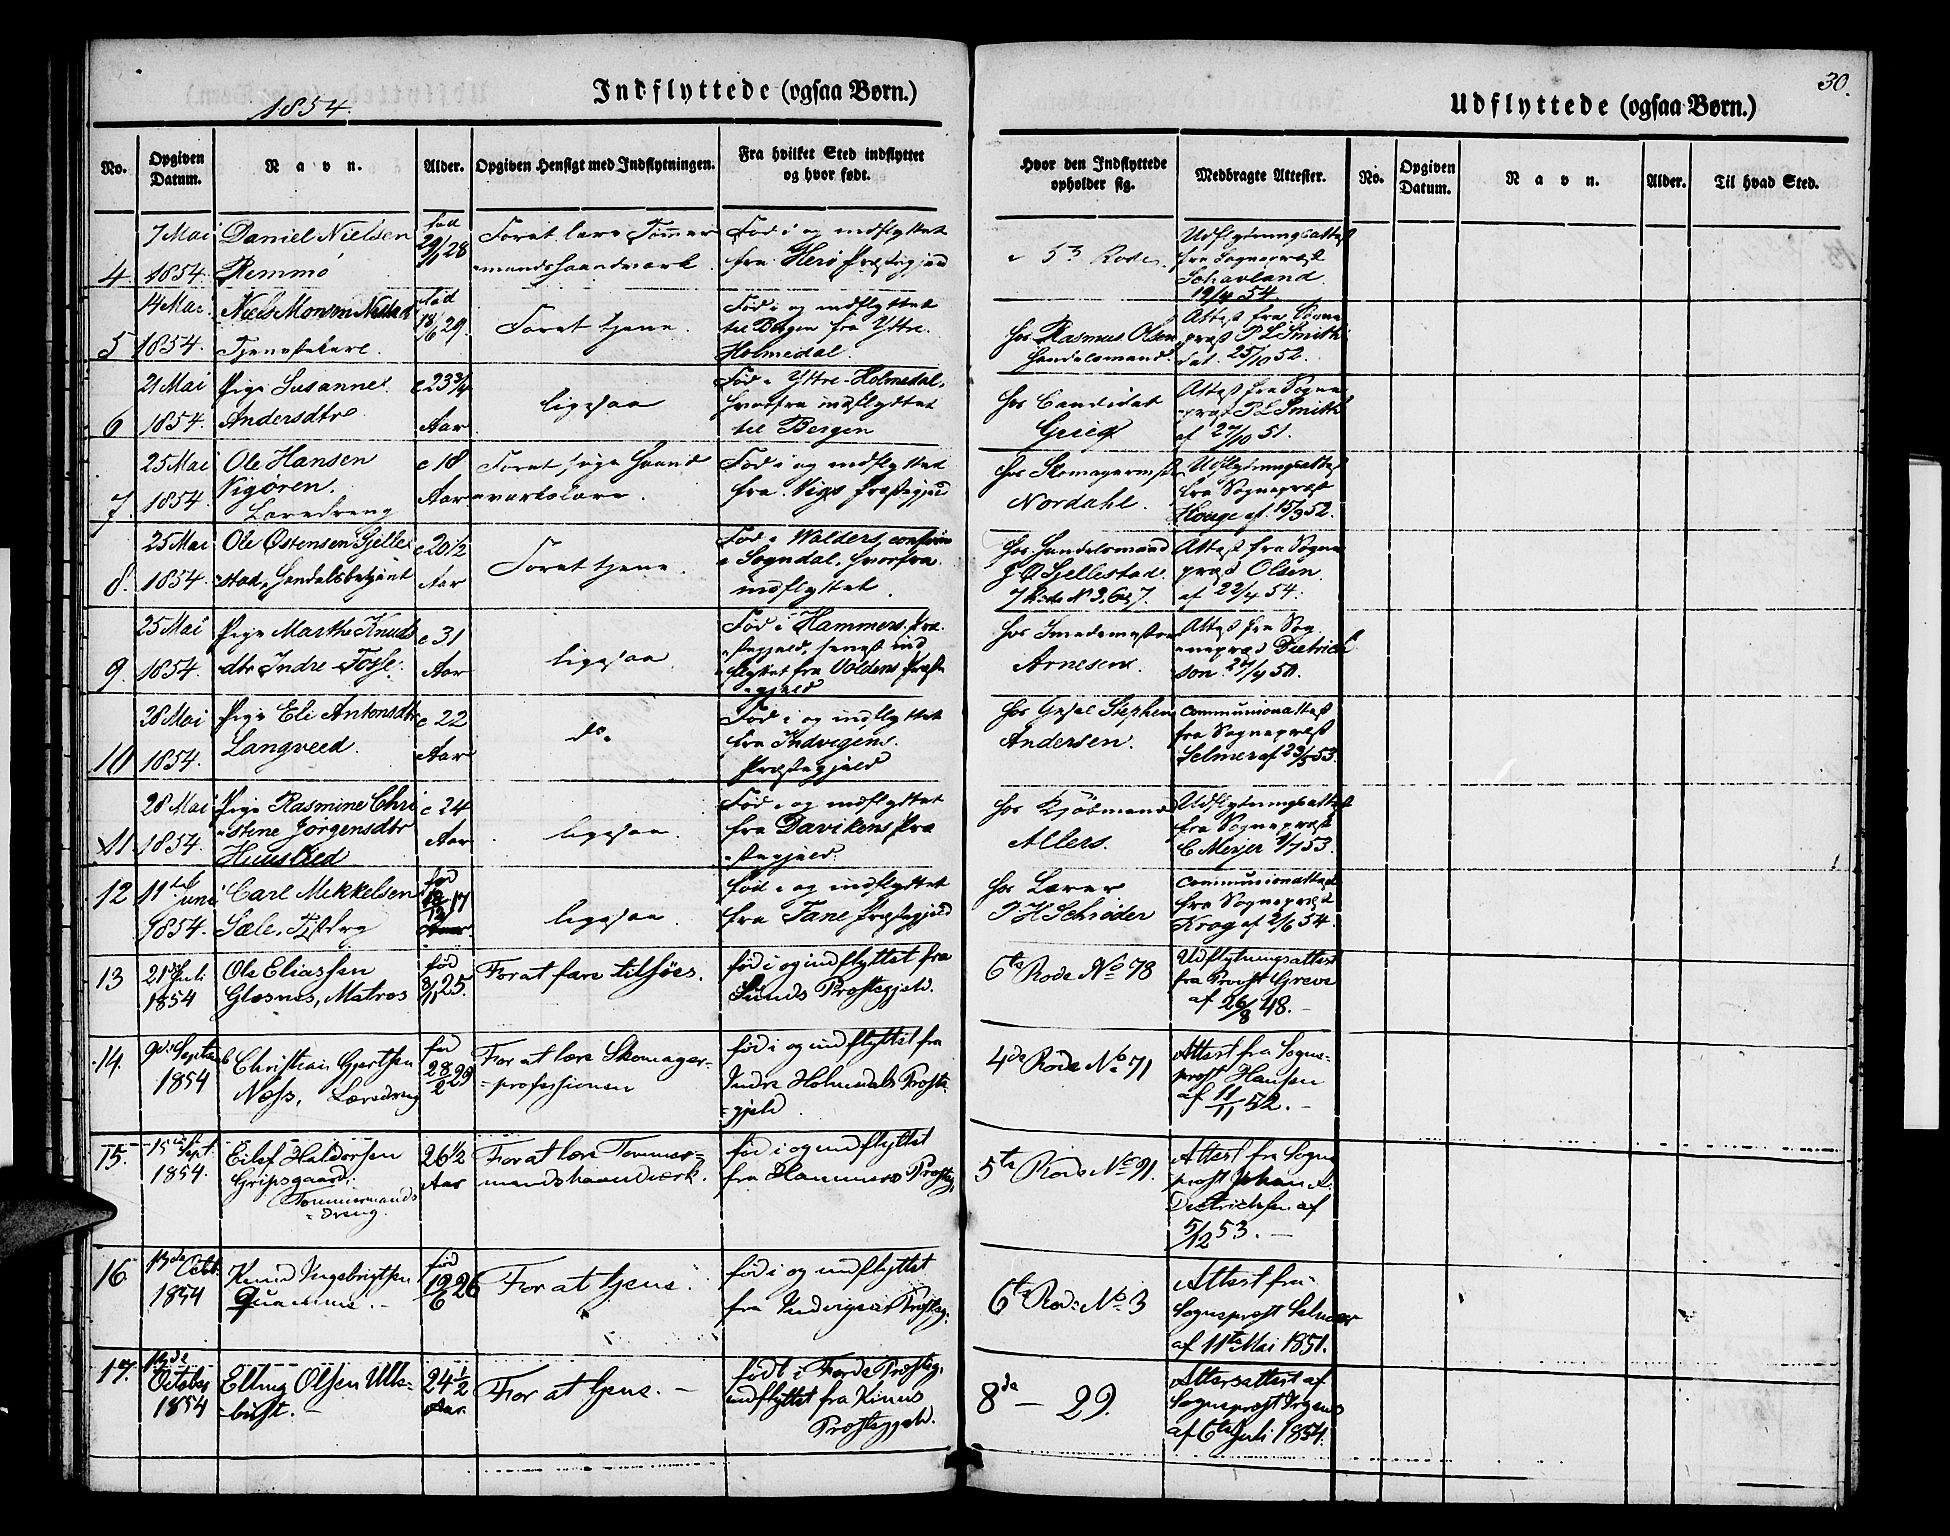 30.
1854.
Indflyttede (ogsaa Børn.)
Udflyttede (ogsaa Børn.)
No.
Opgiven Datum.
Navn.
Alder.
Opgiven Hensigt med Indflytningen.
Fra hvilket Sted indflyttet og hvor født.
Hvor den Indflyttede opholder sig.
Medbragte Attester.
No.
Opgiven Datum.
Navn.
Alder.
Til hvad Sted.
4
7 Mai
1854.
Daniel Nielsen
Remmø
fød
29/1 28
For at lære Tømmer
mandshaandværk.
Fød i og indflyttet
fra Herø Præstegjeld
5 Rode
Udflytningsattest
fra Sognepræst
19/4 54.
5
14 Mai
1854.
Niels Monsen
Tjenestekarl.
fød
18/6 29.
For at tjene.
Fød i og indflyttet
til Bergen fra Yttre
Holmedal.
hos Rasmus Olsen
Handelsmand.
Attest fra Sogne
præst P L Smith
dat. 25/10 52.
6
21 Mai
1854.
Pige Susanne
Andersdtr
c 23 3/4
Aar
ligesaa
Fød i Yttre-Holmedal,
hvorfra indflyttet
til Bergen
hos Candidat
Grieg
Attest fra Sogne
præst P L Smith
af 27/10 51.
7
25 Mai
1854.
Ole Hansen
Vigøren.
Læredreng
c 18
Aar
For at søge Haand
værkslære.
Fød i og indflyttet
fra Vigs Præstegjeld
hos Skomagermester
Nordahl.
Udflytningsattest
fra Sognepræst
af 15/3 52.
8.
25 Mai
1854.
Ole Østensen Sjelle
stad, Handelsbetjent
c 20 1/2
Aar
For at tjene.
Fød i Walders, confirm
i Sogndal, hvorfra
indflyttet.
hos Handelsmand
J O Sjellestad.
7 Rode N 3, 6 & 7.
Attest fra Sogne
præst Olsen
af 22/4 54.
9.
25 Mai
1854.
Pige Marthe Knuds
dtr Indre Tosse.
c 31
Aar
ligesaa
Fød i Hammers Præ
stegjeld, senest ind
flyttet fra Voldens Præste
gjeld
hos Smedemester
Arnesen.
Attest fra Sog
nepræst Dietrich
son
10
28 Mai
1854.
Pige Eli Antonsdtr
Langveed.
c 22
Aar
do.
Fød i og indflyttet
fra Indvigens
Præstegjeld
hos Stephen
Andersen.
Communionattest
fra Sognepræst
Selmer af 23/5 53.
11
28 Mai
1854.
Pige Rasmine Chri
stine Jørgensdtr
c 24
Aar
ligesaa.
Fød i og indflyttet
fra Davikens Præ
stegjeld.
hos Kjøbmand
Allers.
Udflytningsattest
fra Sognepræst
C Meyer 1/7 53.
12
11te Juni
1854.
Carl Mikkelsen
Sæle,
fød
17
Aar
ligesaa.
fød i og indflyttet
fra Fane Præstegjeld
hos Lærer
P H Schrøder
Communionattest
fra Sognepræst
Krog af 2/6 54.
13
21de Juli
1854
Ole Eliassen
Glesnes, Matros
fød
8/11 25.
For at fare tilsøes.
fød i og indflyttet fra
Sunds Præstegjeld.
6te Rode No 78
Udflytningsattest
fra Provst Greve
af 26/8 48.
14.
9de Septemb
1854
Christian Gjertsen
Næss, Læredreng
fød
28/2 29
For at lære Skomager-
professionen
fød i og indflyttet fra
Indre Holmedals Præste-
gjeld.
4de Rode No 71
Attest fra Sogne-
præst Hansen
af 11/11 52.
15.
15de Sept.
1854.
Eilef Haldorsen
Gripsgaard,
Tømmermands
dreng.
26 1/2
Aar
For at lære Tømmer=
mandshaandværk.
fød i og indflyttet
fra Hammers Præsteg.
5te Rode No 91.
Attest fra Sogne
præst Johan A.
Dietrichsen af
5/12 53.
16
13de Octbr.
1854
Knud Ingebrigtsen
Quamme.
fød
19/6 26
For at tjene.
fød i og indflyttet
fra Indvigens Præsteg.
6te Rode No 3
Attest fra
Sognepræst Selmer
af 11te Mai 1851.
17.
October
1854
Elling Olsen Ulle-
bust.
24 1/2
Aar
For at tjene.
født i Førde Præsteg.
indflyttet fra Kinns
Præstegjeld.
8de — 29.
Altersattest af
Sognepræst Irgens
af 6te Juli 1854.